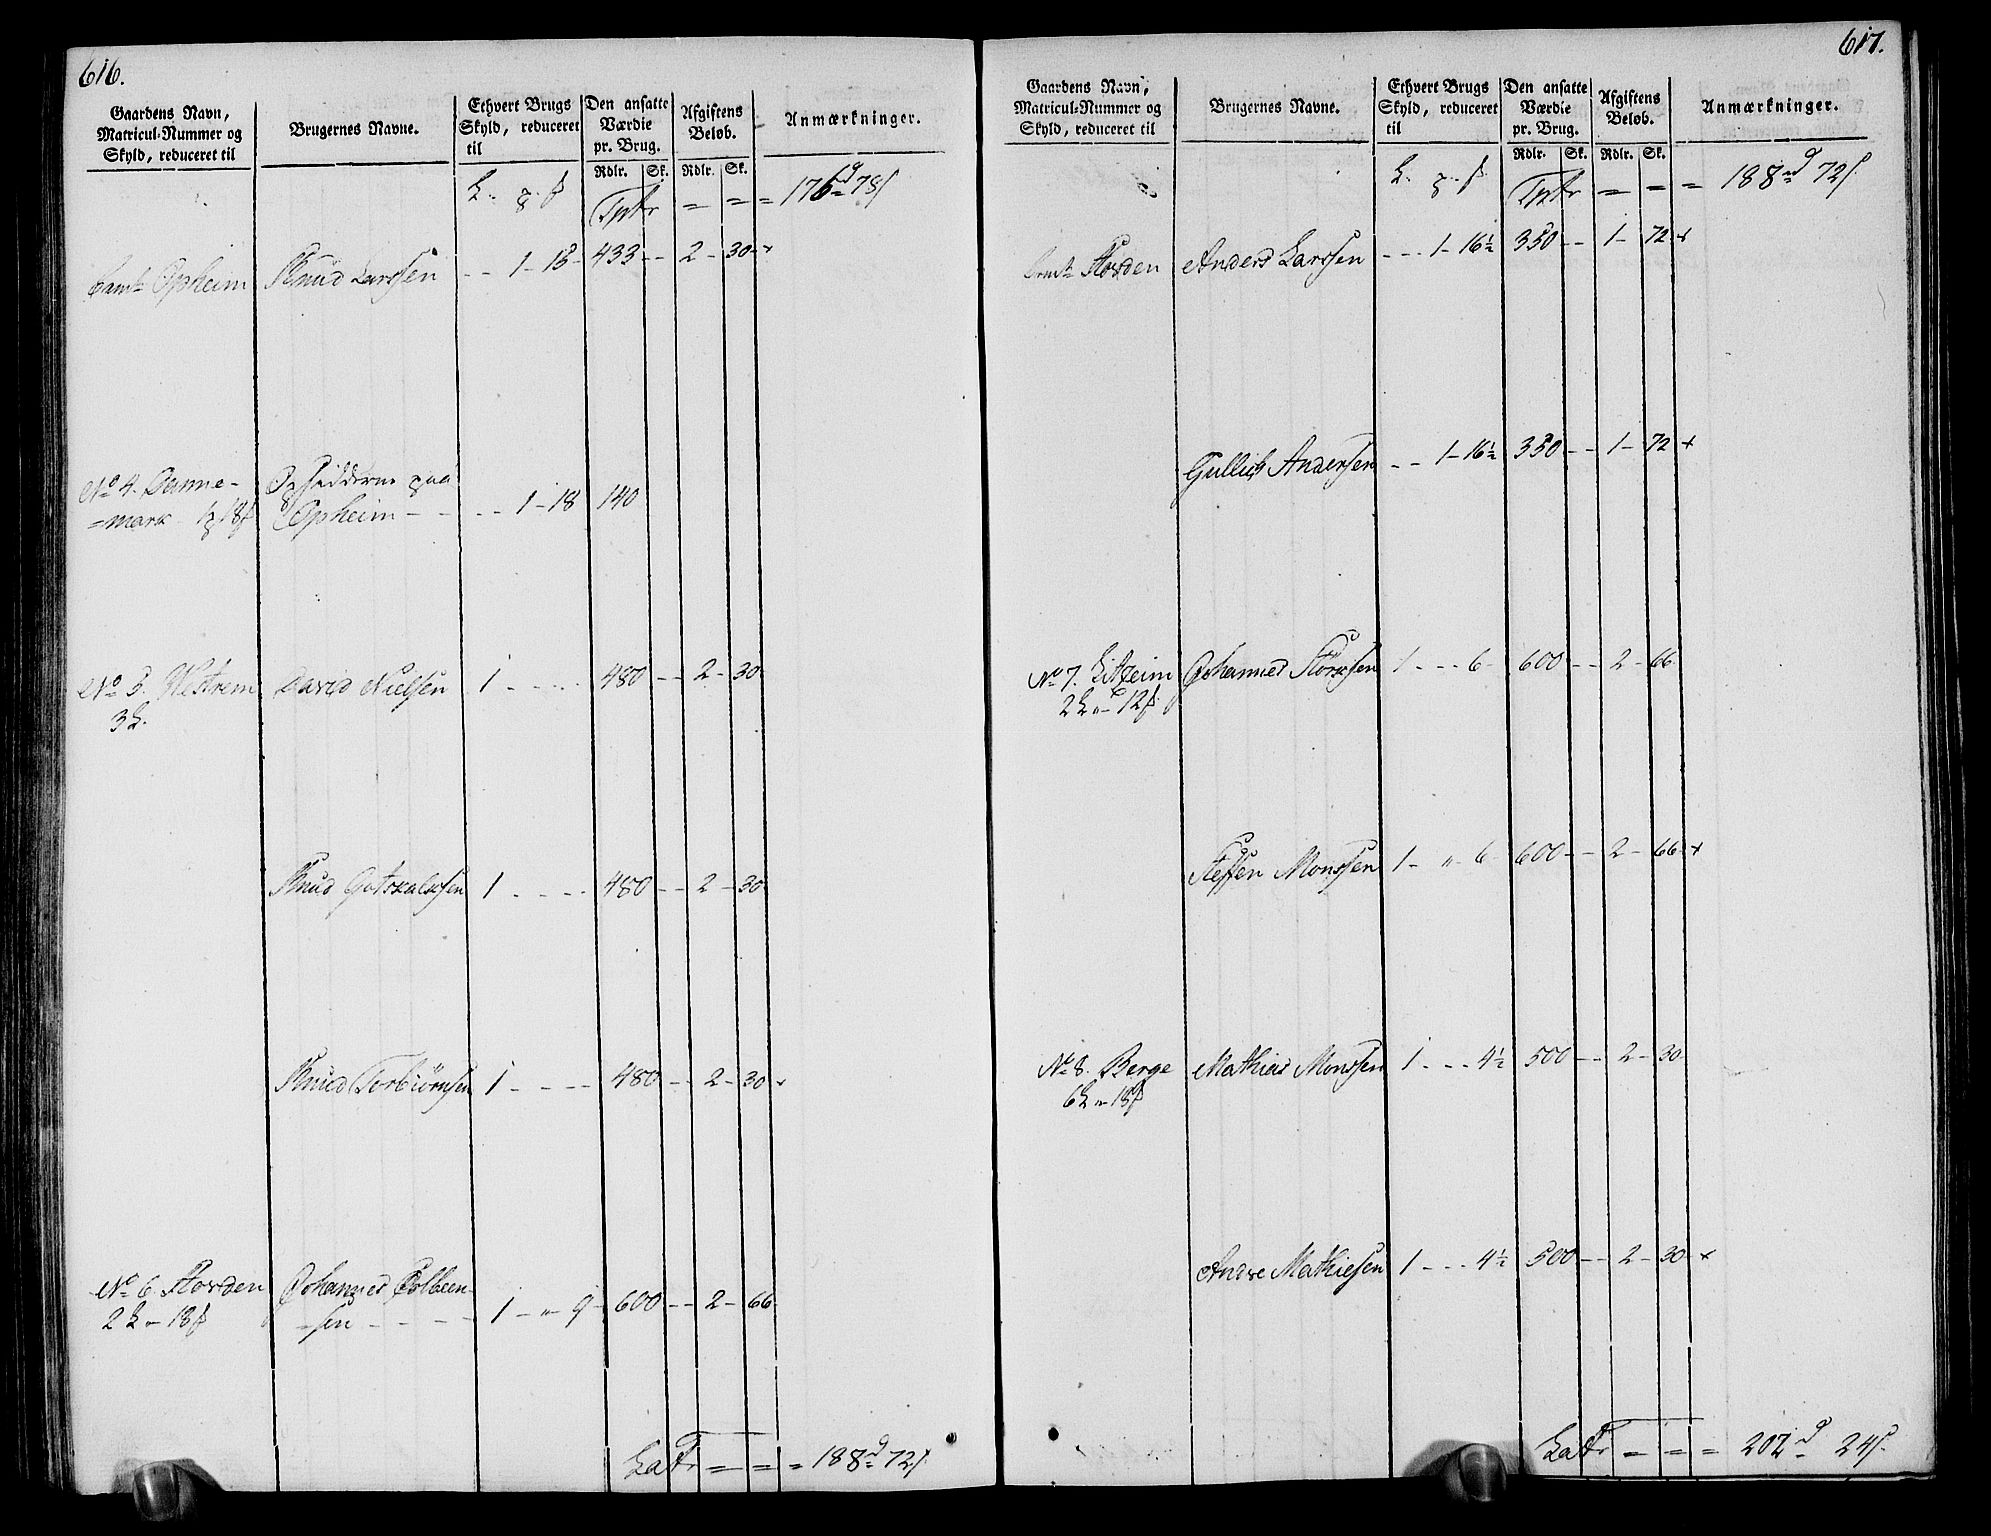 616.
Gaardens Navn,
Matricul-Nummer og
Skyld, reduceret til
Brugernes Navne.
Ethvert Brugs
Skyld, reduceret
til
Den ansatte
Værdie
pr. Brug.
Rdlr. Sk.
Afgiftens
Beløb.
Rdlr. Sk.
Anmærkninger.
Tptr = = = 176d 78s
Opheim Knud Larssen - - 1 - 18 - 433 - - 2 - 30 - x
No 4. Danne-
=mark 1p 18s
Opsidderne paa
Opheim - - - - 1 - 18 140
No 5. Westrem David Nielsen 1 - - - 480 - - 2 - 30
3L.
Knud Gutskalssen 1 - - - - 480 - - 2 - 30
Knud Torbiörnsen 1 - - - - 480 - - 2 - 30 -
No 6. Flovden Johannes Colbeen-
2L „ - 18s =sen - - - - 1 - „ - 9 - 600 - - 2 - 66
Latr = = = 188d 72s
617.
Gaardens Navn,
Matricul-Nummer og
Skyld, reduceret til
Brugernes Navne.
Ethvert Brugs
Skyld, reduceret
til
Den ansatte
Værdie
pr. Brug.
Rdlr. Sk.
Afgiftens
Beløb.
Rdlr. Sk.
Anmærkninger.
Tptr = = = 188d 72s
Flovden Anders Larssen - - - 1 - 16½ 350 - - 1 - 72 - x
Gullich Andersen - - 1 - 16½ 350 - - 1 - 72 x
No 7. Johannes 1 - - - 6 - 600 - - 2 - 66
2L „ - 12s
Steffen Monssen 1 - „ - 6 - 600 - - 2 - 66 x
No 8. Berge Mathias Monssen 1 - - - 4½ 500 - - 2 - 30
6L „ - 18s
Andre Mathiesen 1 - - - 4½ 500 - - 2 - 30 x
Latr = = = 202d 24s